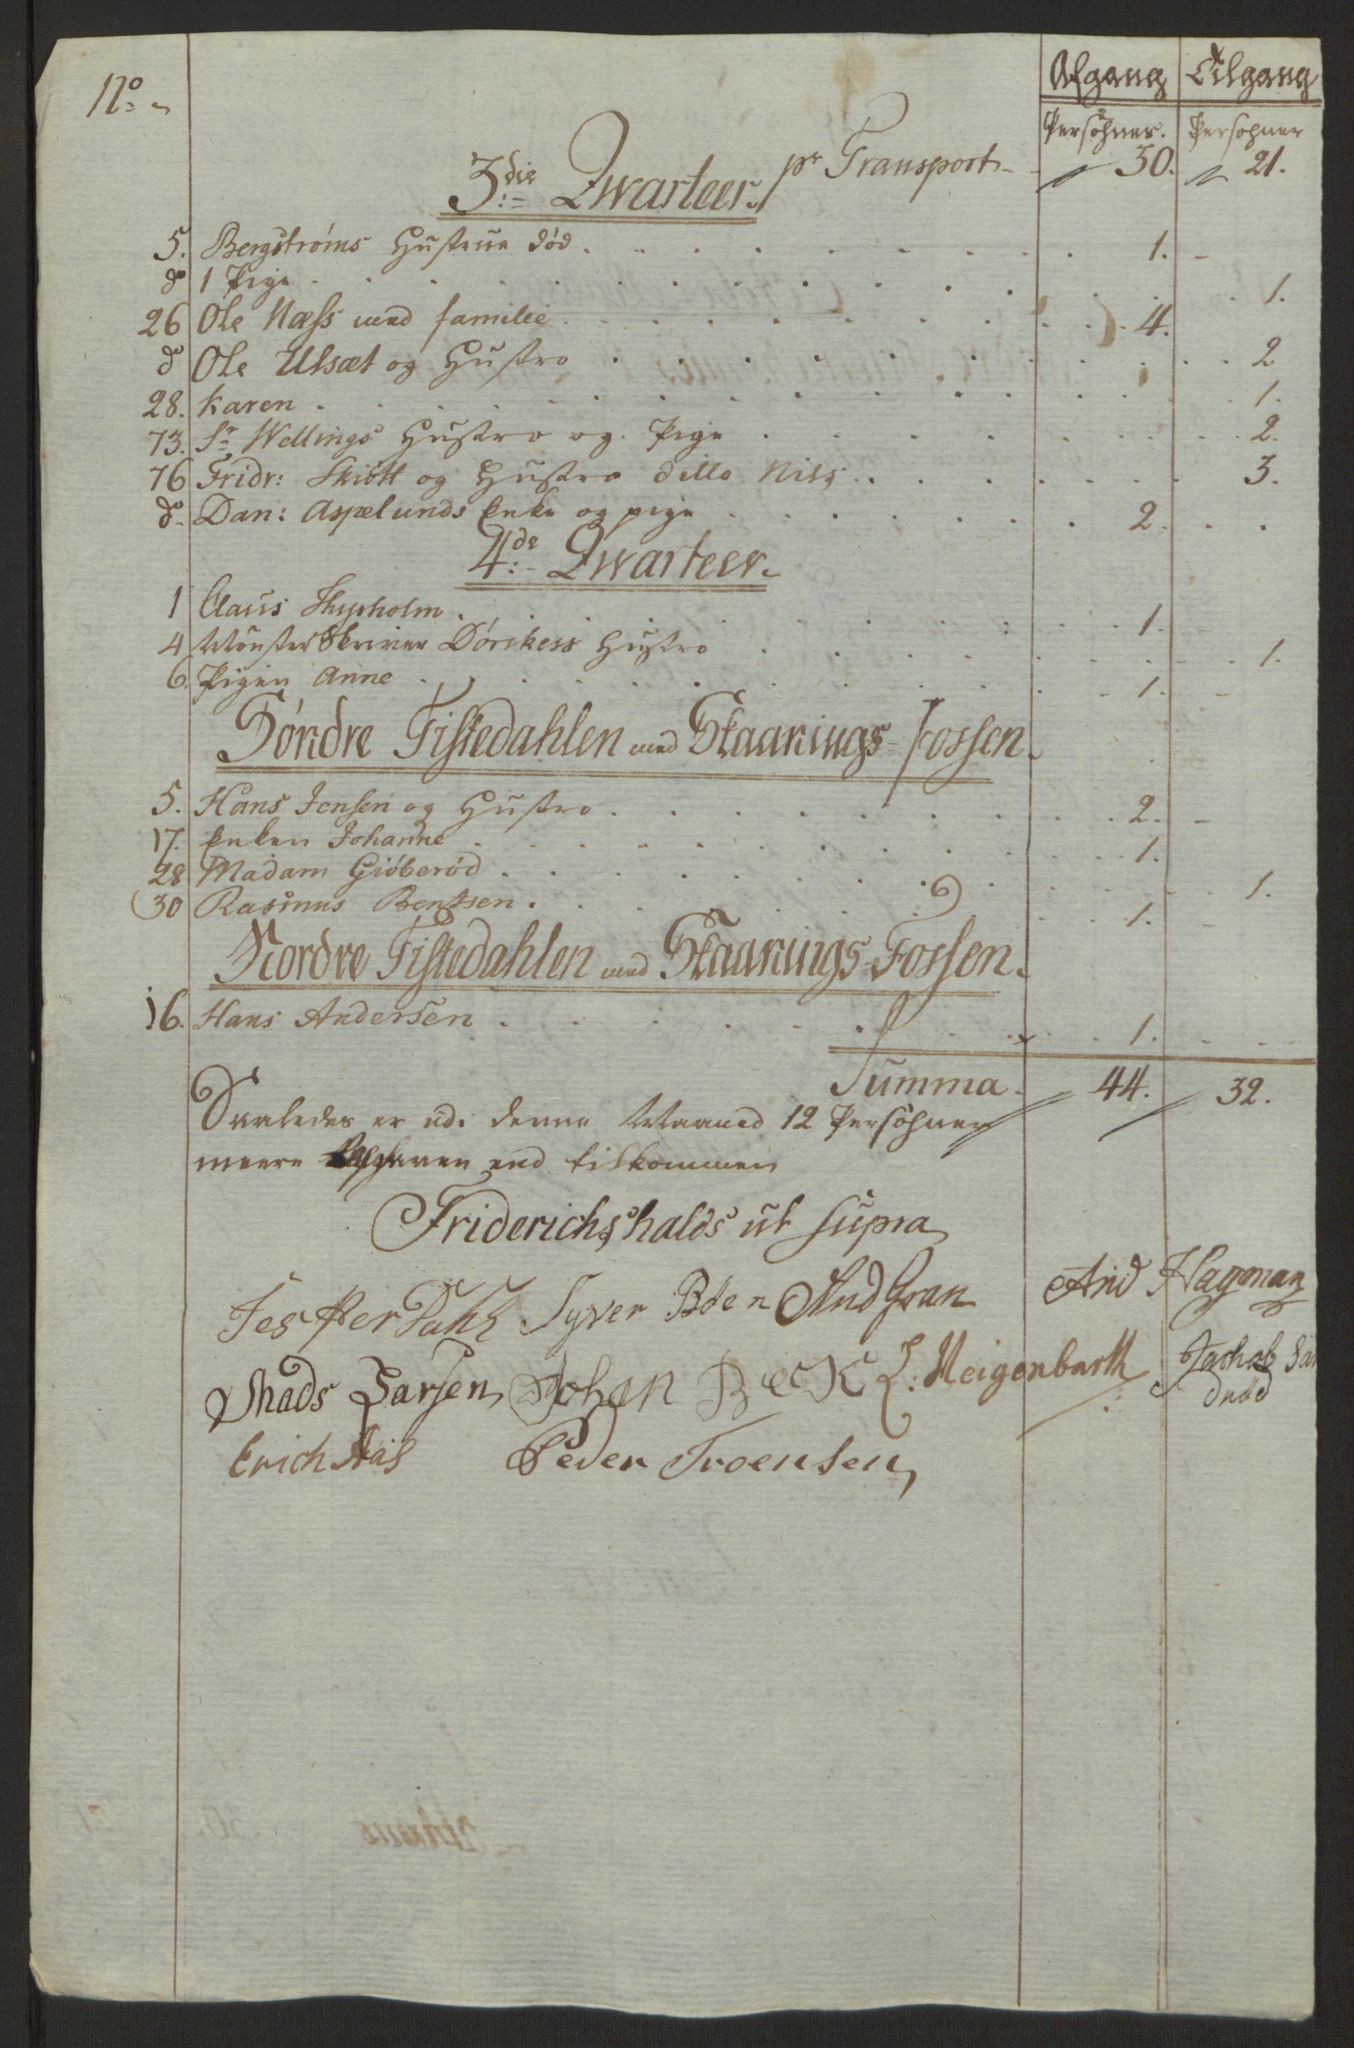 No Afgang Tilgang
Persohner. Persohner
pr Transport 30. 21.
3die Qwarteer
5. Bergstrøms Hustrue død 1.
do 1 Pige 1.
26 Ole Næss med familie 4.
do Ole Ulsæt og Hustro 2
28. Karen 1.
73. Sr Wellings Hustro og Pige 2.
76 Fridr: Skiött og Hustro ditto Nils 3.
do Dan: Aspelunds Enke og pige 2
4de Qwarteer
1 Claus Thysholm 1.
4 Mönster Skriver Hustro 1.
6. Pigen Anne 1.
Söndre Tistedahlen med Skaanings Fossen
5. Hans Jensen og Hustro 2.
17. Enken Johanne 1.
28 Madam Giöberød 1.
30 Rasmus Bentsen 1.
Nordre Tistedahlen med Skaanings Fossen.
16. Hans Andersen 1.
Summa 44. 32.
Saaledes er udi denne Maaned 12 Persohner
meere end tilkommen
Friderichshalds ut supra
Jesper Dahl Syver Böen And Gran And Hagman
Mads Larsen Johan Beck L: Meigenbarth Jachob
Erich Aas Peder Troensen